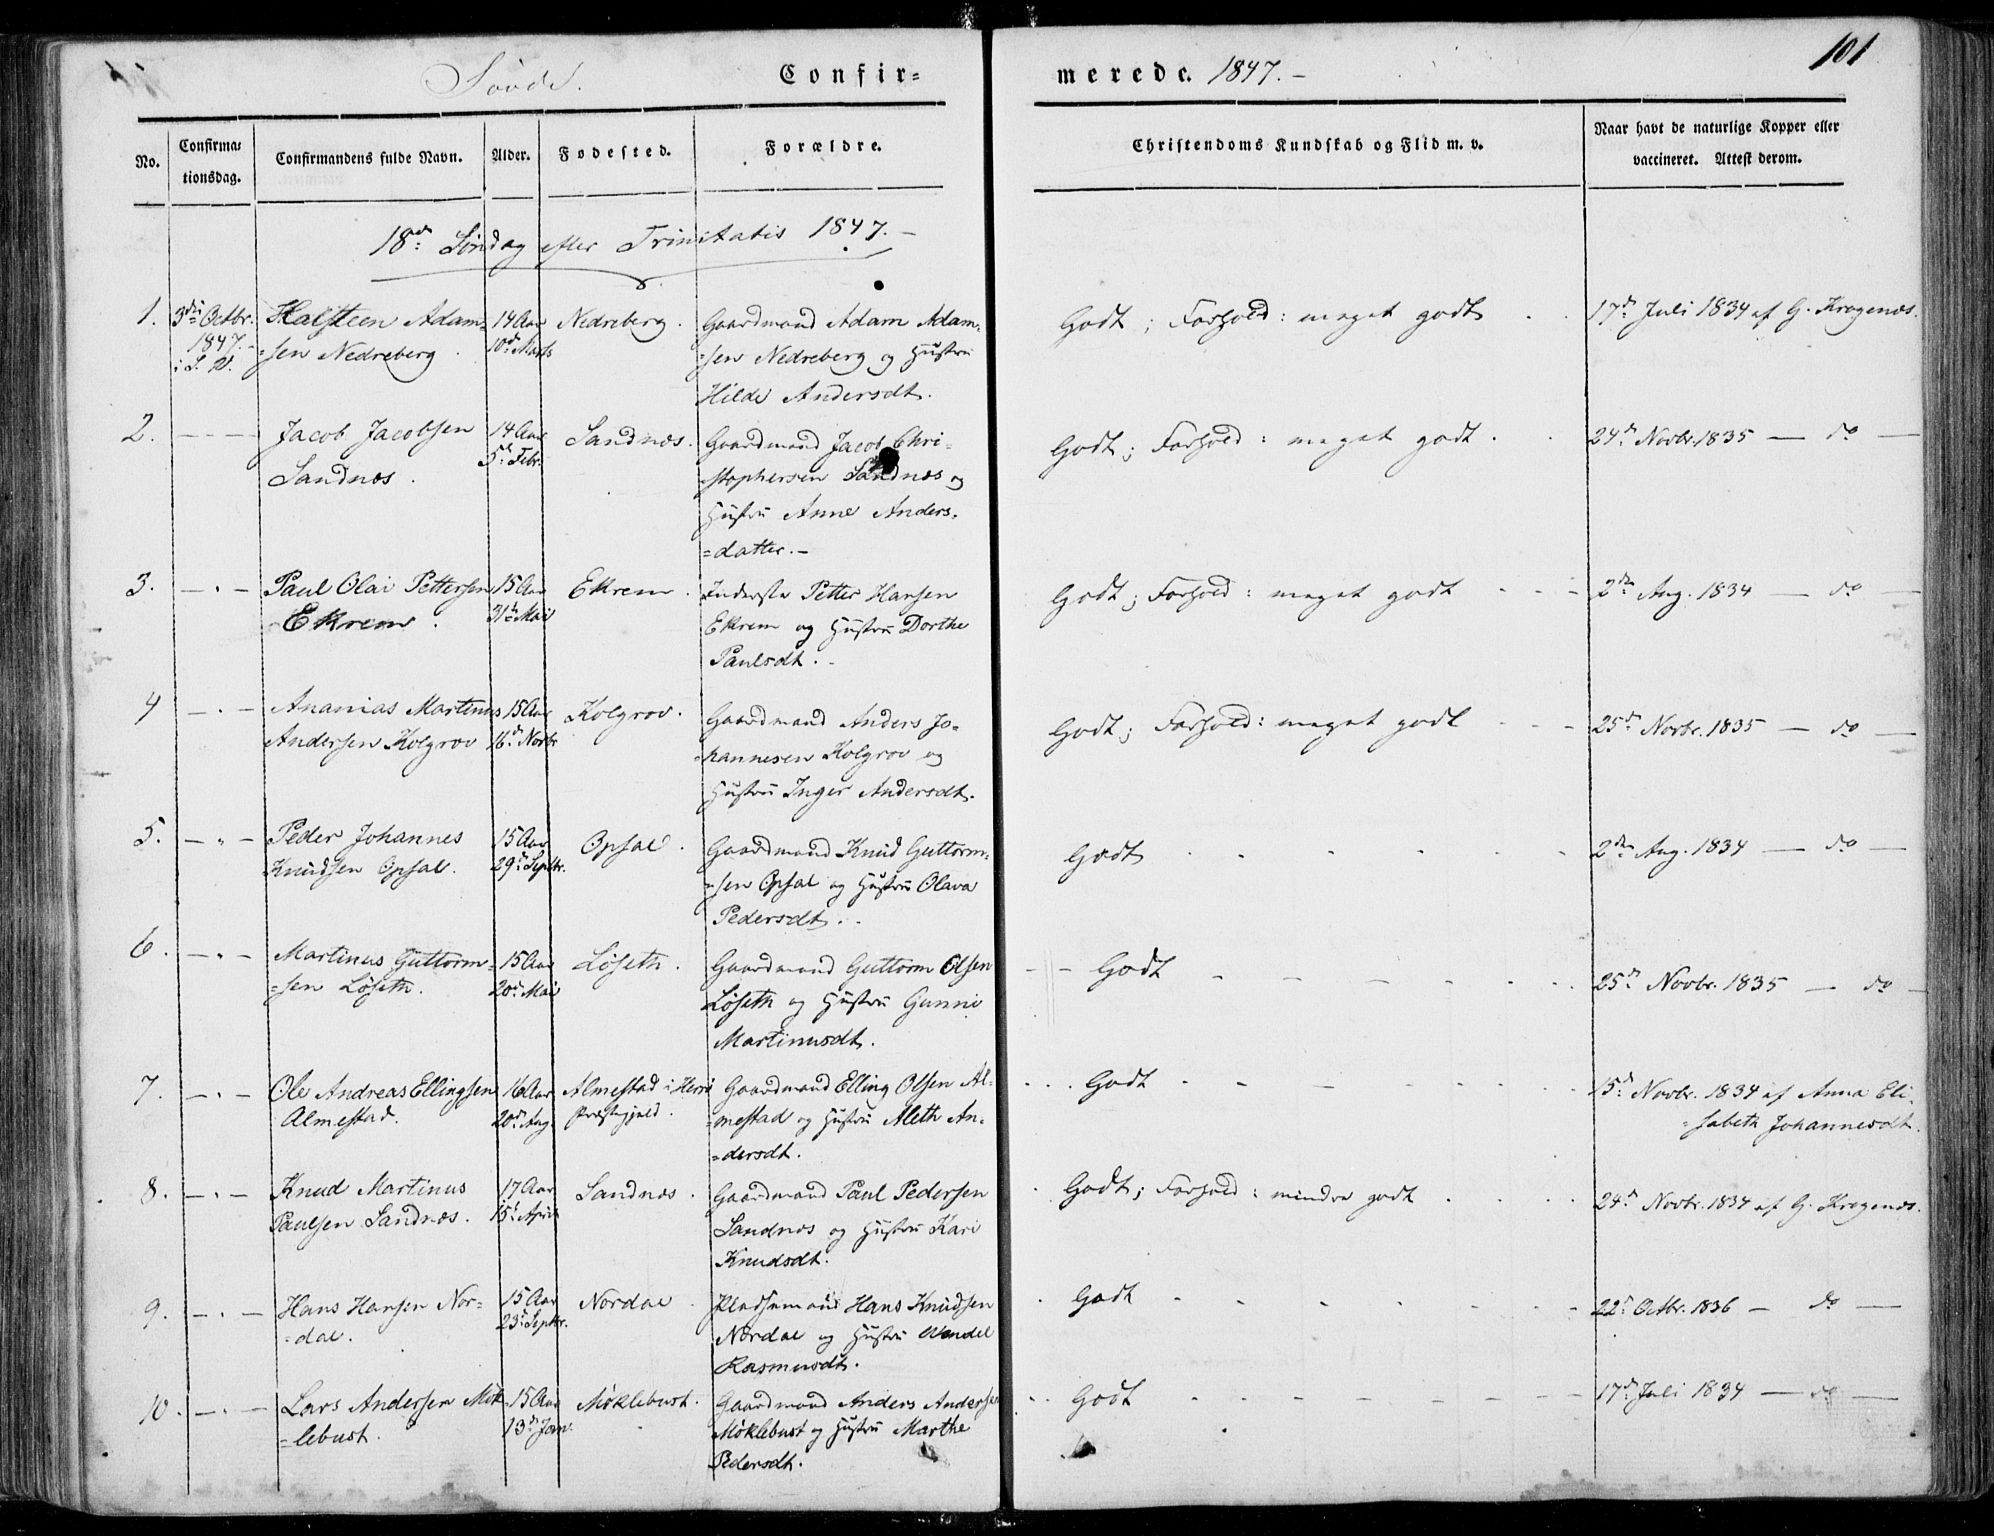 Confir=
merede. 1847. –
101
No.
Confirma=
tionsdag.
Confirmandens fulde Navn.
Alder.
Fødested.
Forældre.
Christendoms Kundskab og Flid m. v.
Naar havt de naturlige Kopper eller
vaccineret. Attest derom.
18de Søndag efter Trinitatis 1847. –
1. 3die Octbr. Halsteen Adam= 14 Aar Nedreberg. Gaardmand Adam Adam= Godt; Forhold: meget godt 17de Juli 1834 af G. Krogenæs.
1847. sen Nedreberg. 10de Marts =sen Nedreberg og Hustru
Hilde Andersdt.
2. – – – Jacob Jacobsen 14 Aar Sandnæs. Gaardmand Jacob Chri= Godt; Forhold: meget godt 24de Novbr. 1835 — do —
Sandnæs. 5te Febr. stophersen Sandnæs og
Hustru Anne Anders=
=datter. –
3. – " – Paul Olai Pettersen 15 Aar Ekrem. Inderste Petter Hansen Godt; Forhold: meget godt 2den Aug. 1834 — do —
Ekrem. 31te Mai Ekrem og Hustru Dorthe
Paulsdt. –
4 – " – Ananias Martinus 15 Aar Kolgrov. Gaardmand Anders Jo= Godt; Forhold: meget godt 25de Novbr. 1835 — do —
Andersen Kolgrov 16de Novbr =hannesen Kolgrov og
Hustru Inger Andersdt.
5. – " – Peder Johannes 15 Aar Opsal. Gaardmand Knud Guttorm= Godt 2den Aug. 1834 — do —
Knudsen Opsal. 29de Septbr. =sen Opsal og Hustru Olava
Pedersdt. –
6. – " – Martinus Guttorm= 15 Aar Løseth. Gaardmand Guttorm Olsen Godt 25de Novbr. 1835 — do —
=sen Løseth. 20de Mai Løseth og Hustru Gunni
Martinusdt.
7. – " – Ole Andreas Ellingsen 16 Aar Almestad i Herrø Gaardmand Elling Olsen Al= Godt 15de Novbr. 1834 af Anna Eli=
Almestad. 20de Aug Præstegjeld. =mestad og Hustru Aleth An= =sabeth Johannesdt.
=dersdt.
8. – " – Knud Martinus 17 Aar Sandnæs. Gaardmand Paul Pedersen Godt; Forhold: mindre godt 24de Novbr. 1834 af G. Krogenæs.
Paulsen Sandnæs. 15de April Sandnæs og Hustru Kari
Knudsdt.
9. – " – Hans Hansen Nor= 15 Aar Nordal. Pladsemand Hans Knudsen Godt 22de Octbr. 1836 — do —
=dal. 23de Septbr. Nordal og Hustru Wendel
Rasmusdt.
10. – " – Lars Andersen Møk= 15 Aar Møklebust. Gaardmand Anders Andersen Godt 17de Juli 1834 — do —
=lebust. 13de Jan. Møklebust og Hustru Marthe
Pedersdt.